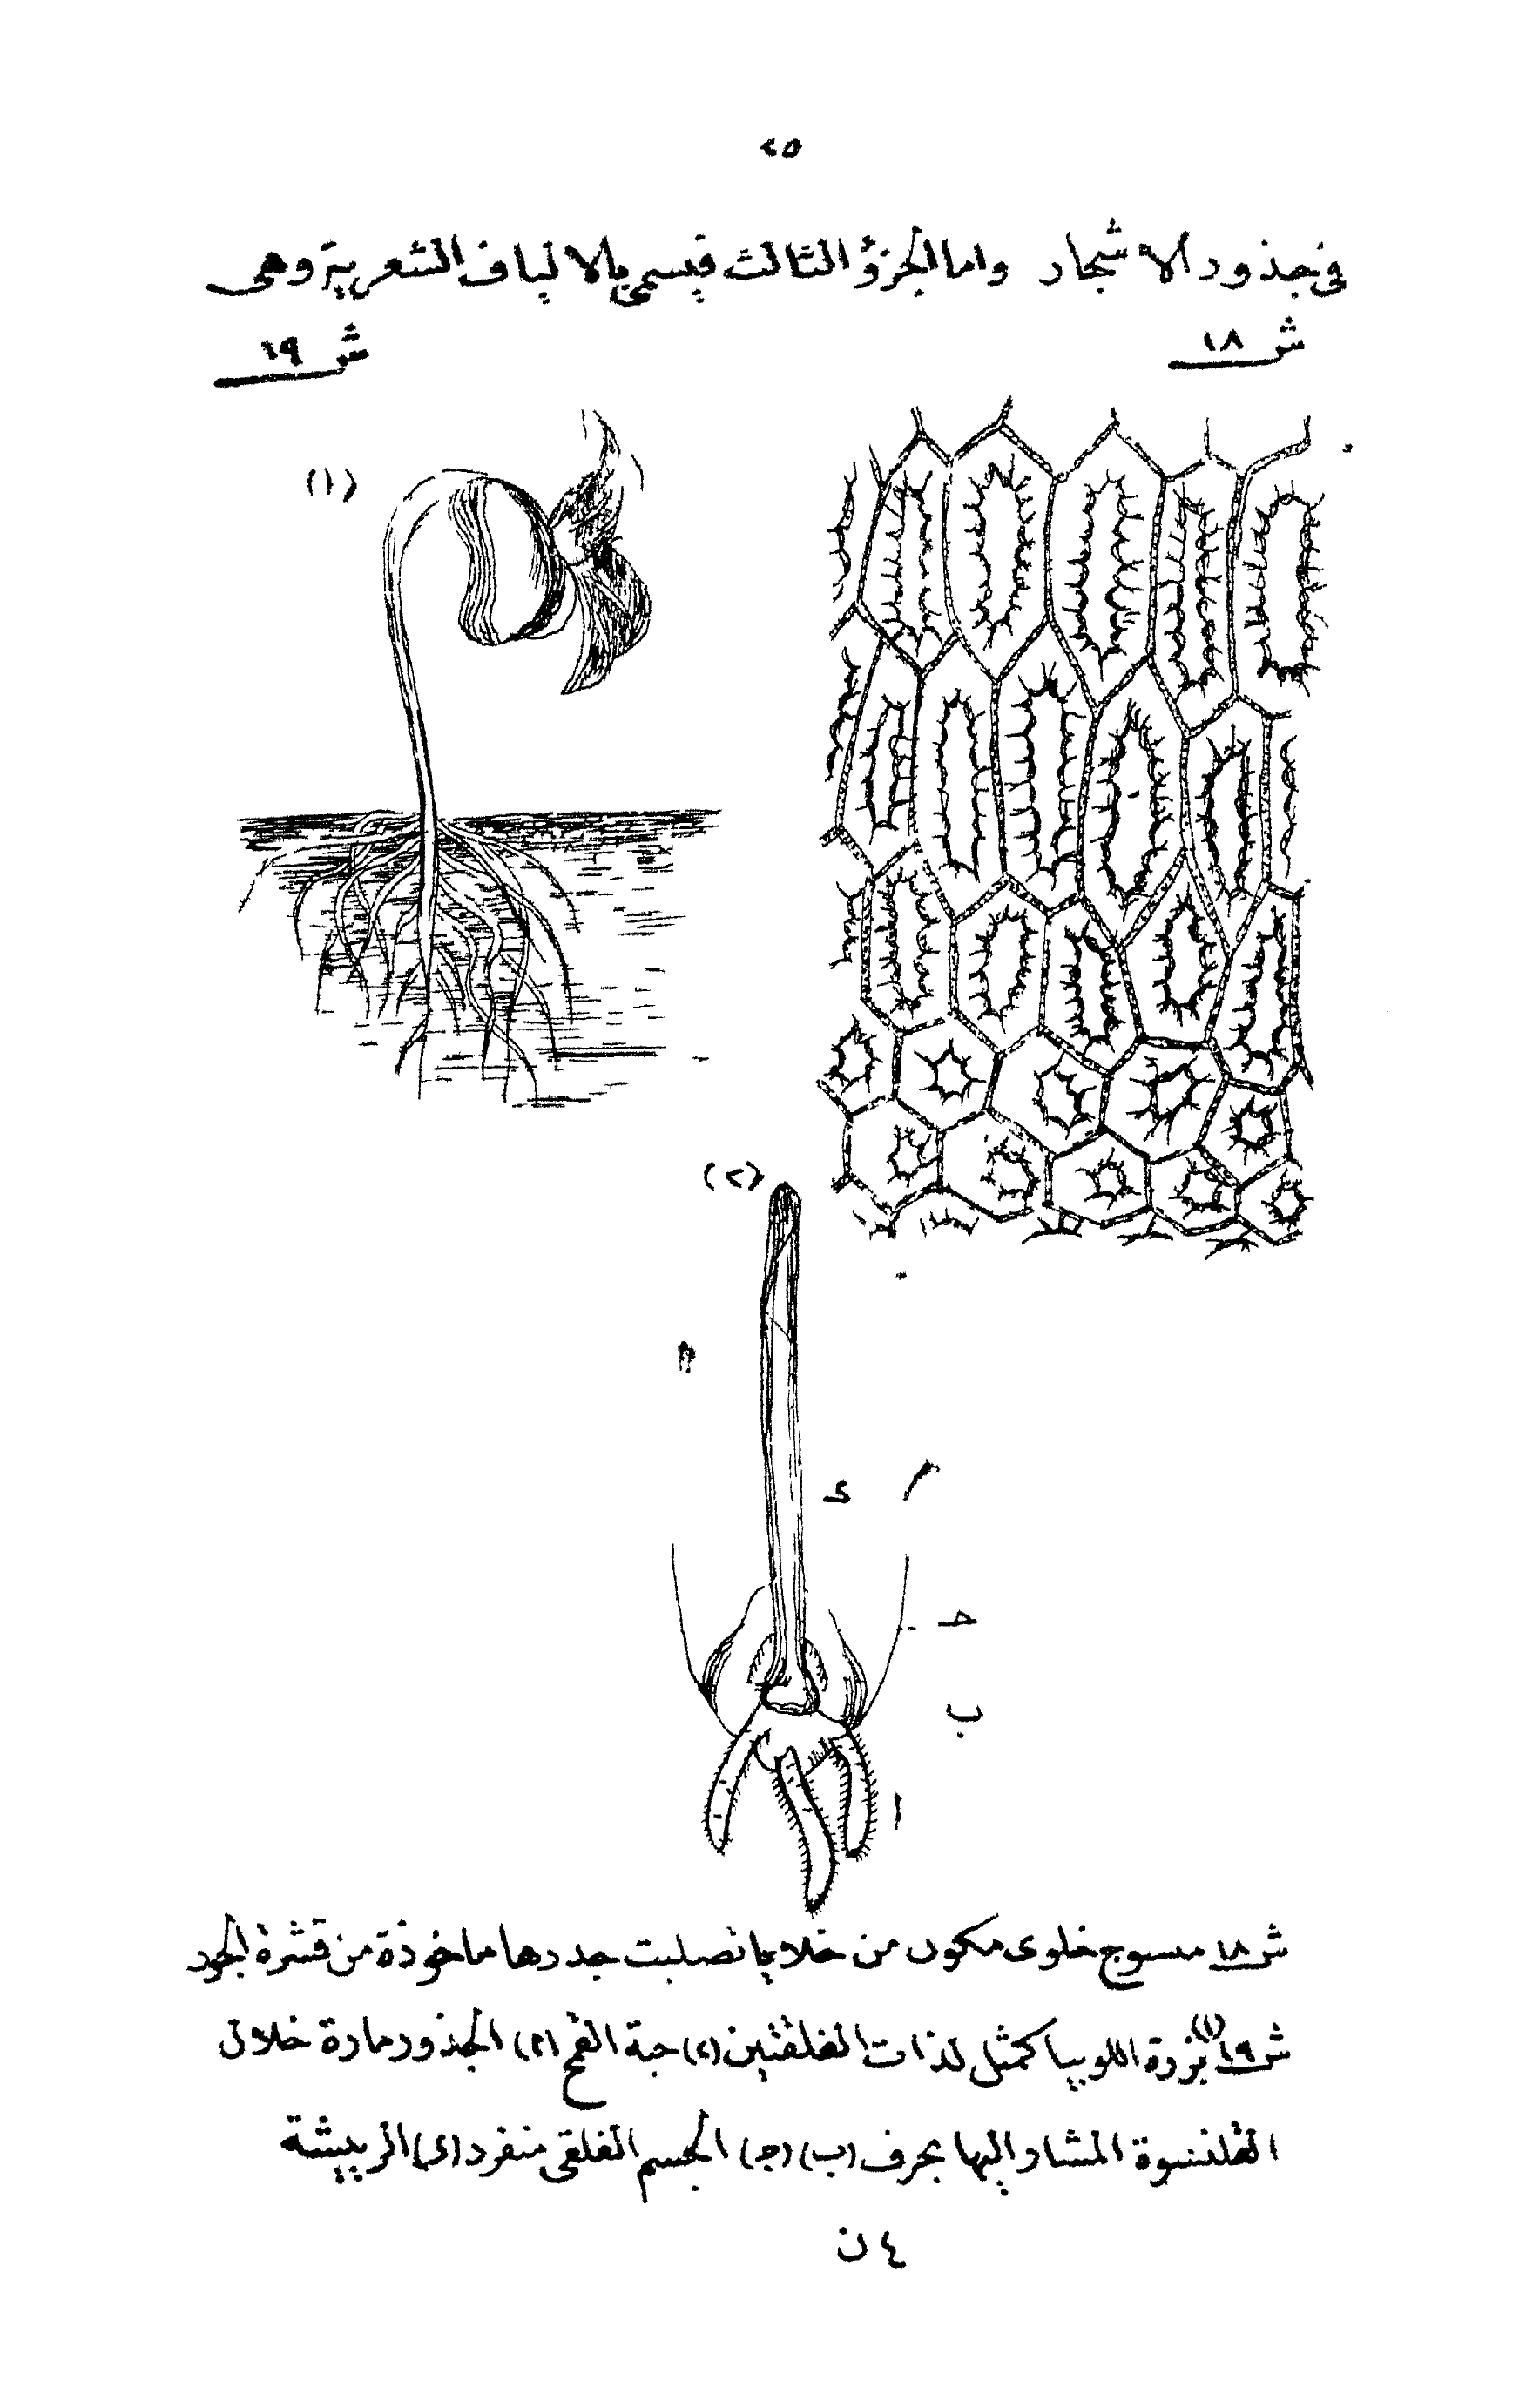 ٢٥
فى جذور الاشجار واما الجزؤ الثالث فيسمى بالالياف الشعرية وهى
ش ١٨
ش ١٩
(١)
(٢)
م
ى
حـ
ب
ا
ش ١٨ منسوج خلوى مكون من خلايا تصلبت جدرها ماخوذة من قشرة الجوز
ش ١٩ (١) بزرة اللوبيا كمثل لذات الفلقتين (٢) حبة القمح (ا) الجذور مارة خلال
القلنسوة المشار اليها بحرف (ب) (جـ) الجسم الفلقى منفرد (ى) الريشة
٤ ن